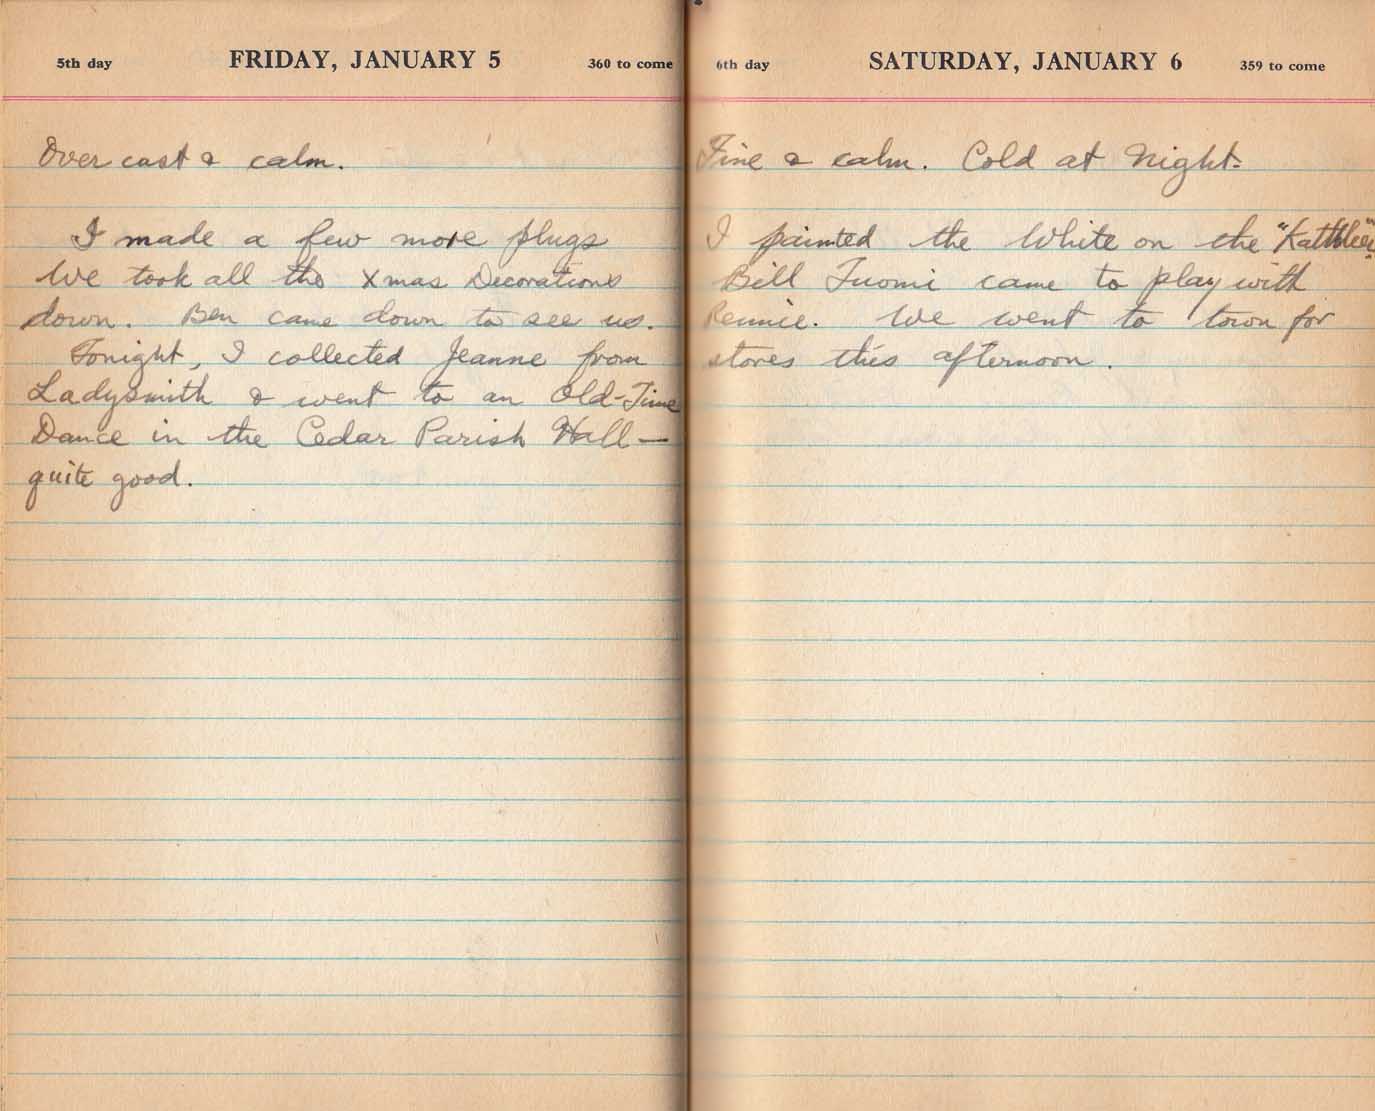 5th day FRIDAY, JANUARY 5 360 to come
Over cast & calm.
I made a few more plugs
We took all the Xmas Decorations
down. Ben came down to see us.
Tonight, I collected Jeanne from
Ladysmith & went to an Old-Time
Dance in the Cedar Parish Hall —
quite good.
6th day SATURDAY, JANUARY 6 359 to come
Fine & calm. Cold at Night.
I painted the White on the "Kathleen"
Bill Tuomi came to play with
Rennie. We went to town for
stores this afternoon.